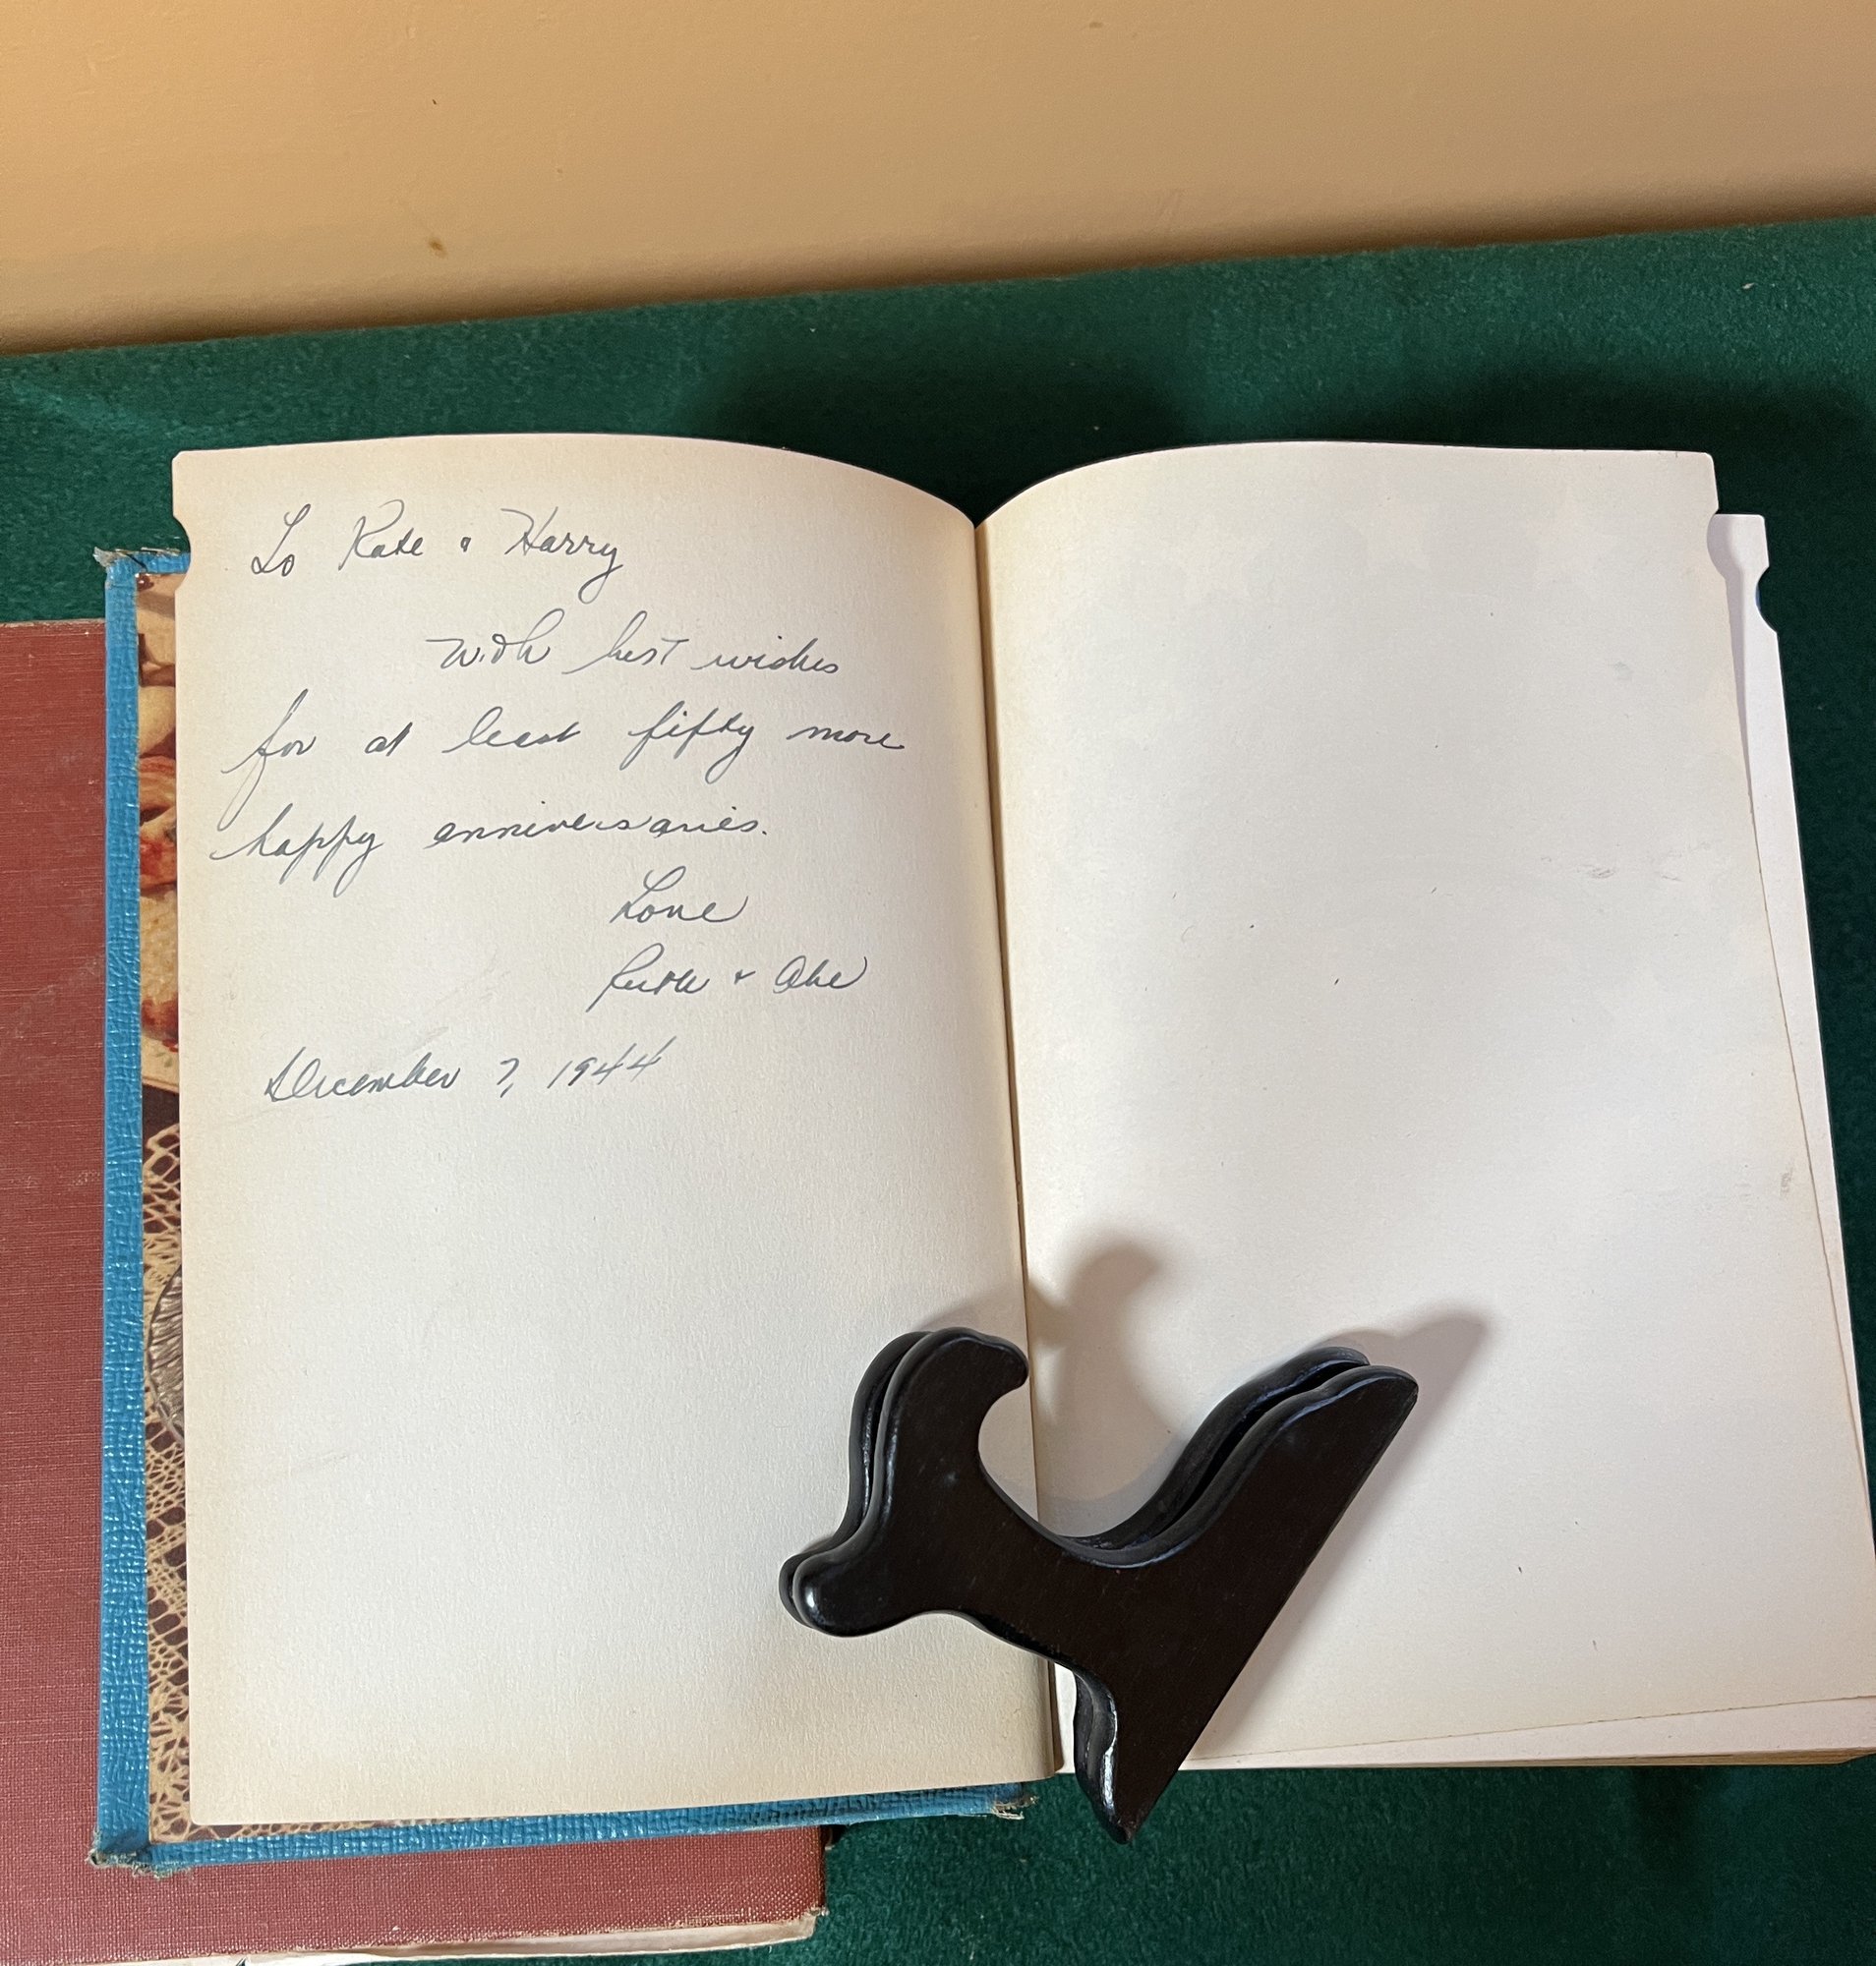 To Kate & Harry
With best wishes
for at least fifty more
happy anniversaries.
Love
Ruth + Abe
December 7, 1944